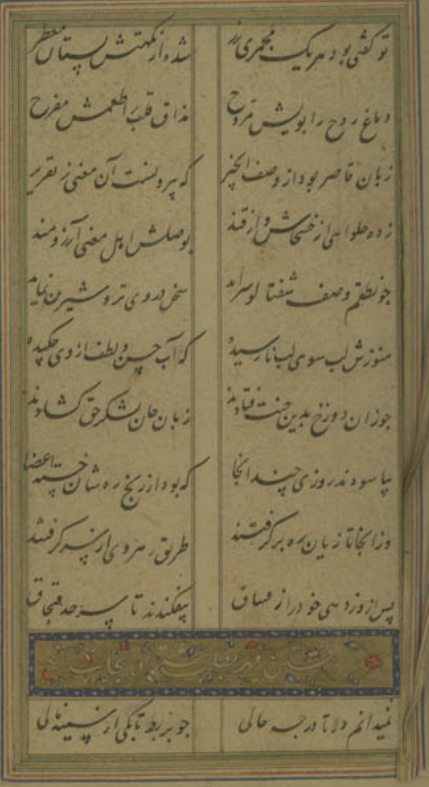 تو کفتی بود هر یک مجمری زر شده از نکهتش بستان معطر
دماغ روح را بویش مروح مذاق قلب اطعمش مفرح
زبان قاصر بود از وصف انجیر که بیرونست آن معنی ز تقریر
زده حلوایی از خشخاش و از قند بوصلش اهل معنی آرزومند
چو نطقم وصف شفتالو سراید سخن در وی تر و شیرین نماید
هنوزش لب سوی لب نارسیده که آب حسن و لطف از وی چکیده
چو زان دوزخ بدین جنت فتادند زبان جان بشکر حق کشادند
بیاسودند روزی چند آنجا که بود از رنج ره شان خسته اعضا
وز آنجا تازیان ره بر گرفتند طریق رهروی از سر گرفتند
پس از وردسی خود را از بیفکندند تا سرحد قبچاق
نمیدانم دلا تا در چه حالی چو بربط تا بکی از سینه نالی